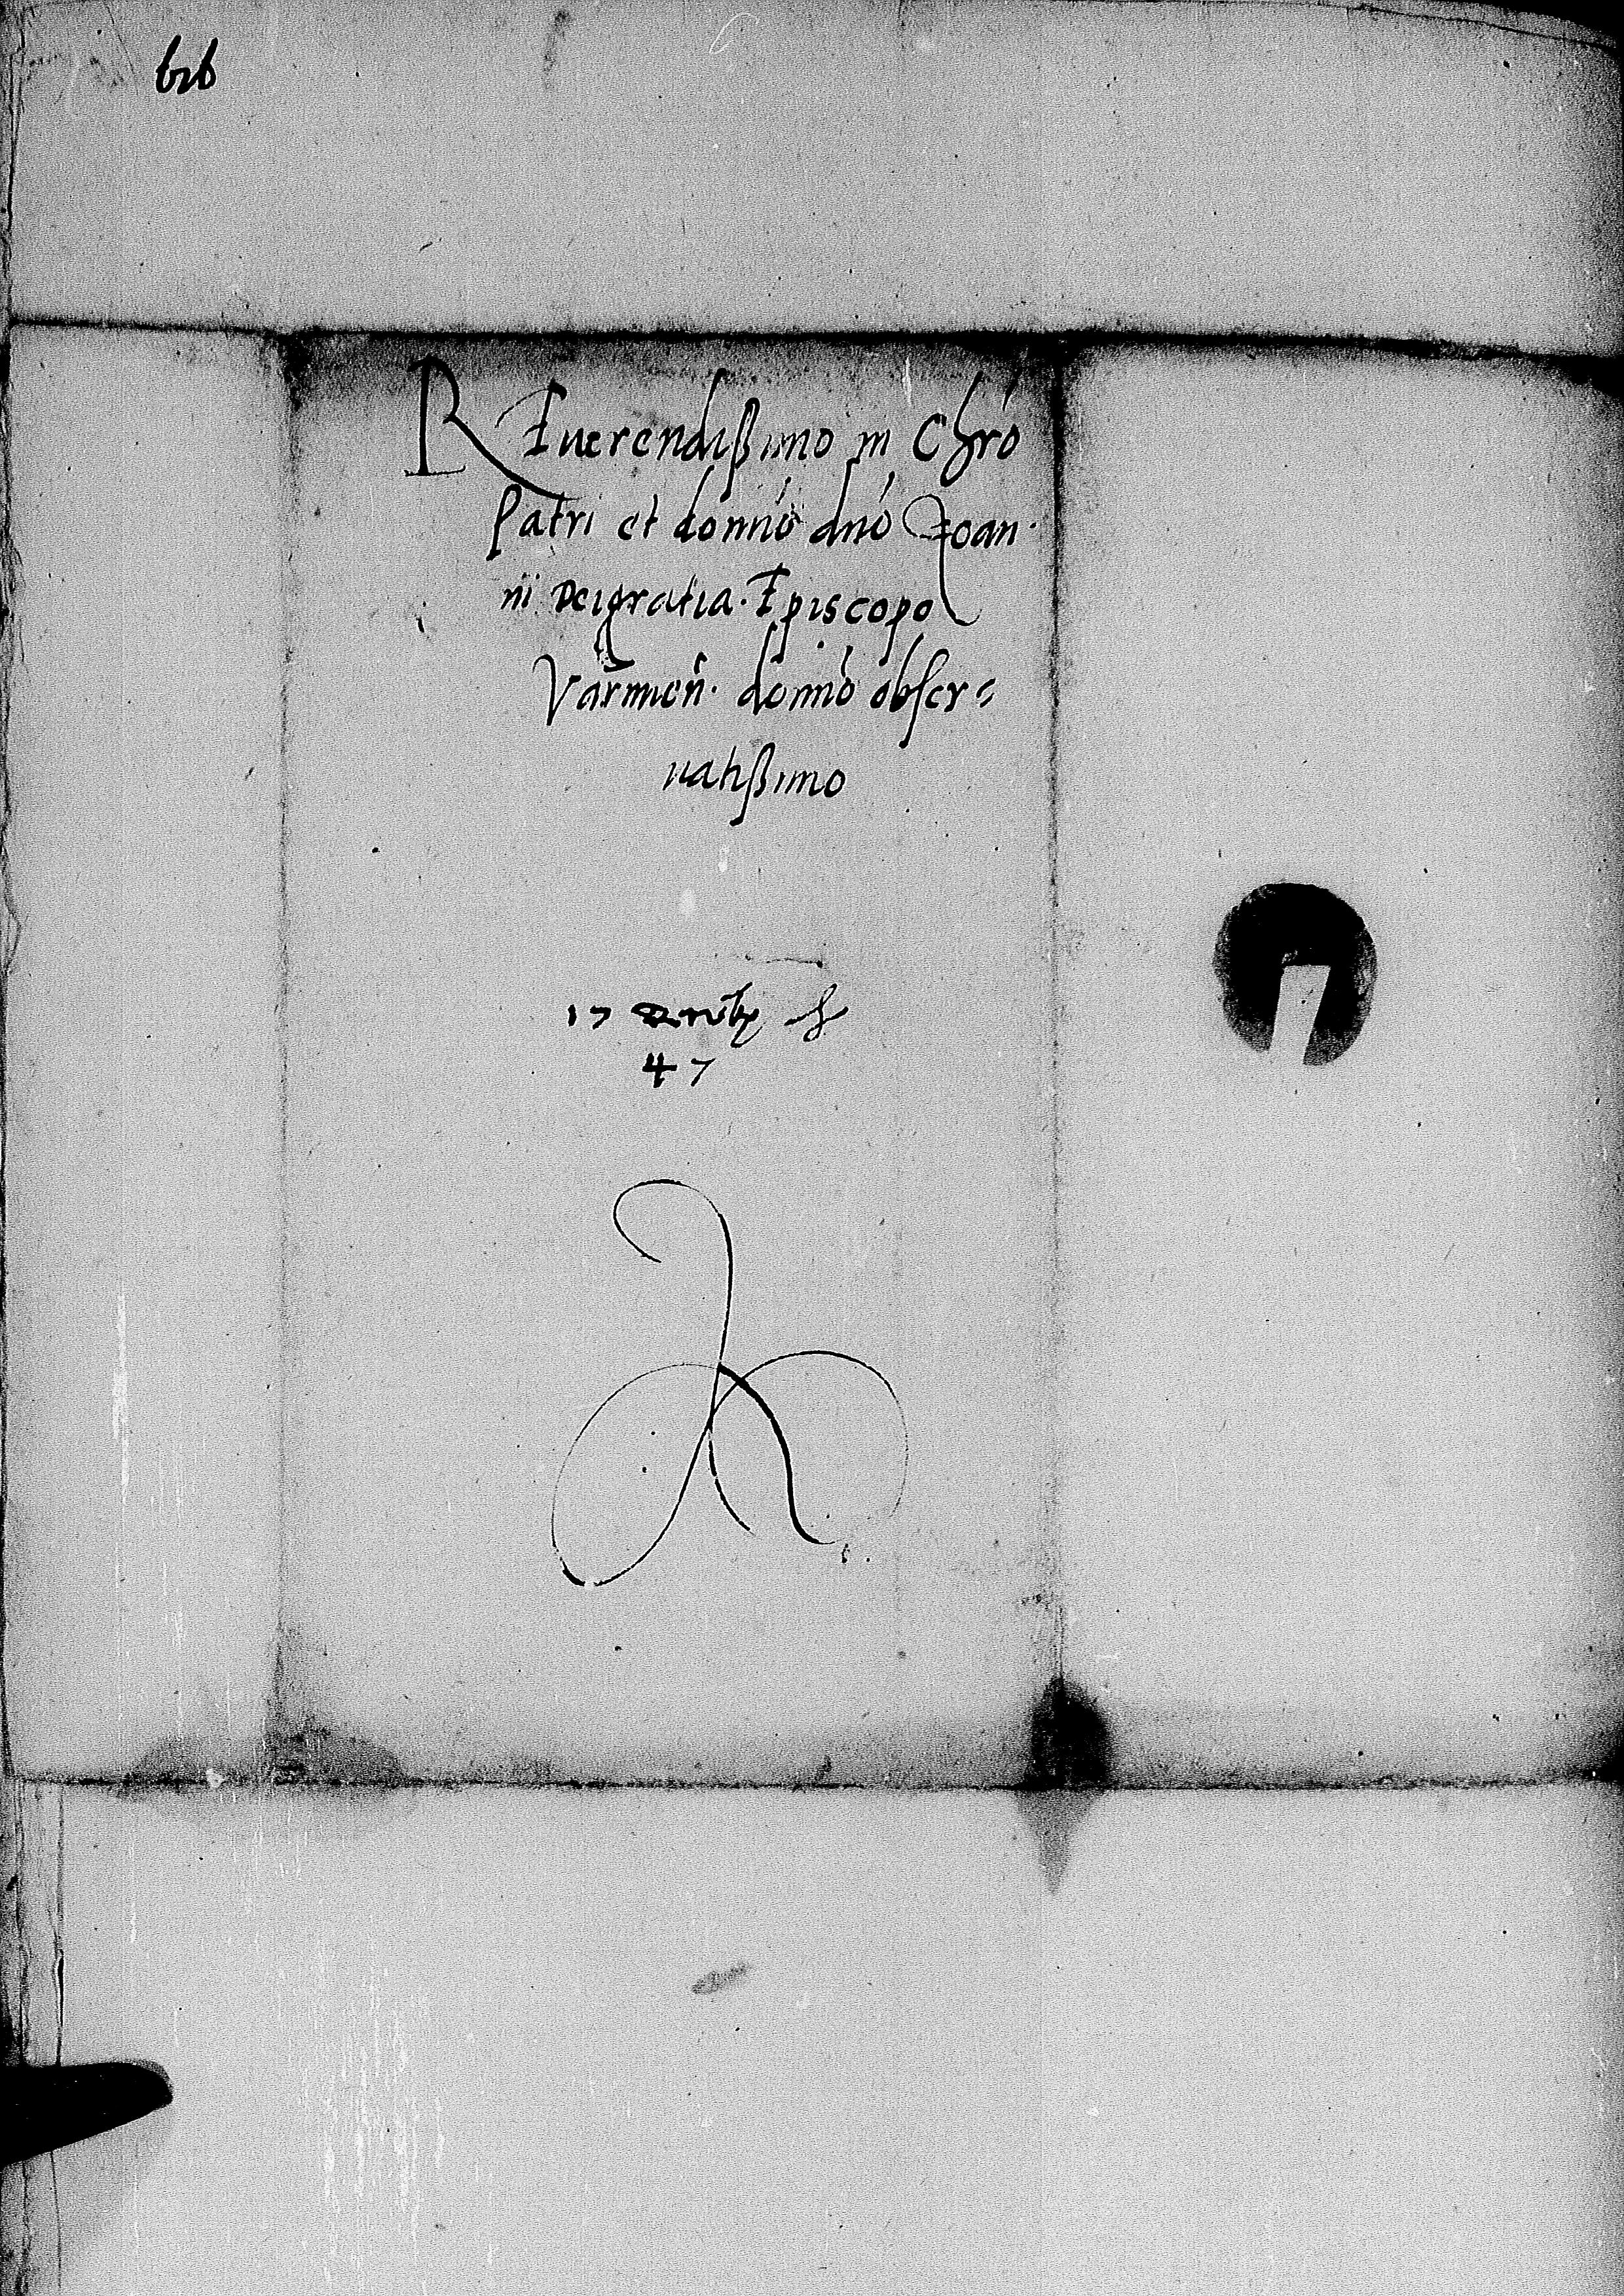 REuerendißimo in Chr̃o
Patri et domño dño Joan
ni Dei gratia. Episcopo
Varmieñ. domño obser=
uatißimo
17
47